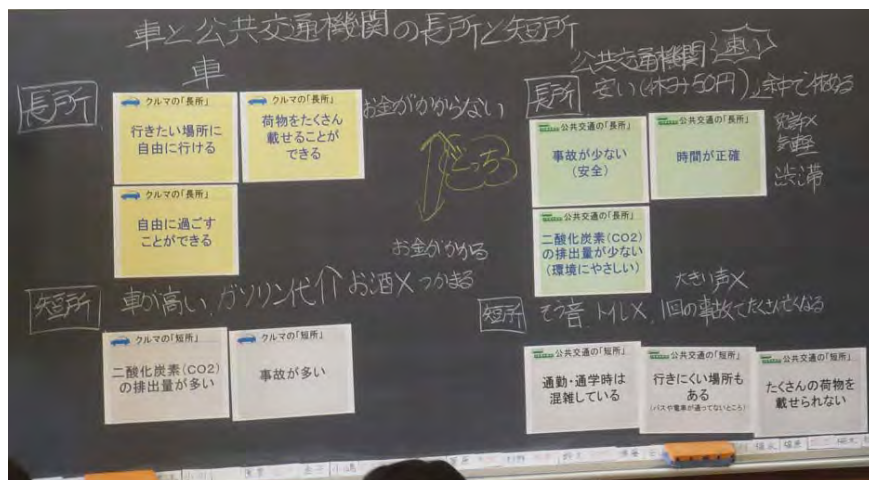 車と公共交通機関の長所と短所
車
長所
クルマの「長所」
行きたい場所に
自由に行ける
クルマの「長所」
荷物をたくさん
載せることが
できる
お金がかからない
クルマの「長所」
自由に過ごす
ことができる
どっち
お金がかかる
短所
車が高い、ガソリン代个 お酒× つかまる
クルマの「短所」
二酸化炭素(CO2)
の排出量が多い
クルマの「短所」
事故が多い
公共交通機関
速い
長所
安い(休日50円)
公共交通の「長所」
事故が少ない
(安全)
公共交通の「長所」
時間が正確
免許×
気軽
渋滞
公共交通の「長所」
二酸化炭素(CO2)
の排出量が少ない
(環境にやさしい)
大きい声×
短所
そう音、トイレ×、1回の事故でたくさん亡くなる
公共交通の「短所」
通勤・通学時は
混雑している
公共交通の「短所」
行きにくい場所も
ある
(バスや電車が通ってないところ)
公共交通の「短所」
たくさんの荷物を
載せられない